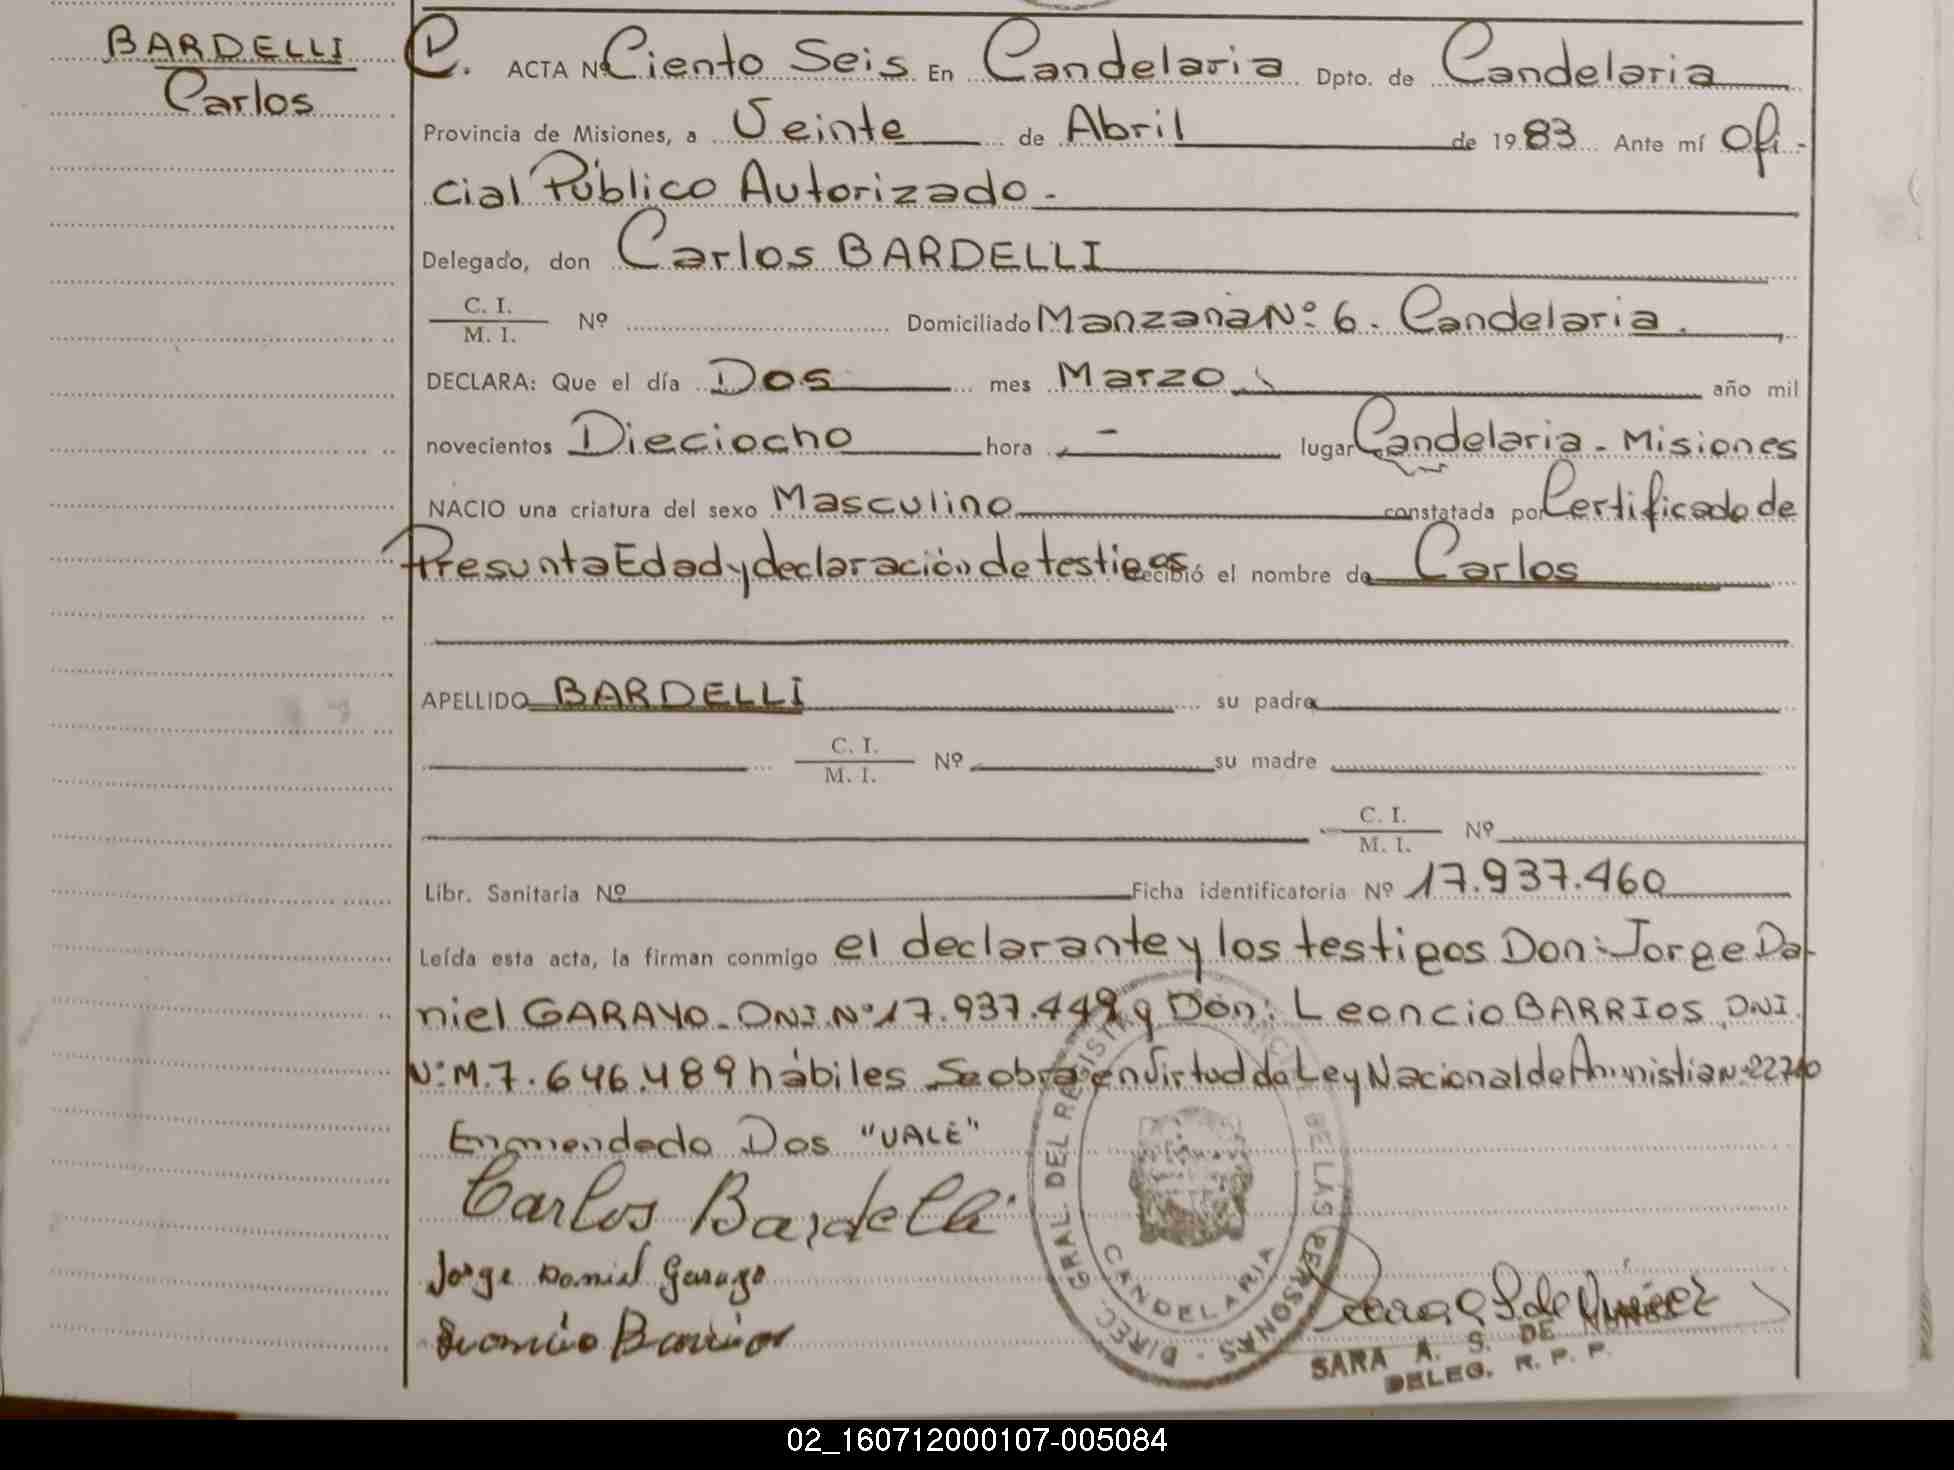 BARDELLI
Carlos
C. ACTA Nº Ciento Seis En Candelaria Dpto. de Candelaria
Provincia de Misiones, a Veinte de Abril de 1983 Ante mí Ofi-
cial Público Autorizado.-
Delegado, don Carlos BARDELLI
C. I.
M. I. Nº Domiciliado Manzana Nº 6. Candelaria.
DECLARA: Que el día Dos mes Marzo año mil
novecientos Dieciocho hora - lugar Candelaria - Misiones
NACIO una criatura del sexo Masculino constatada por Certificado de
Presunta Edad y declaración de testigos recibió el nombre de Carlos
APELLIDO BARDELLI su padre
C. I.
M. I. Nº su madre
C. I.
M. I. Nº
Libr. Sanitaria Nº Ficha identificatoria Nº 17.937.460
Leída esta acta, la firman conmigo el declarante y los testigos Don: Jorge Da-
niel GARAYO - DNI. Nº 17.937.449 y Don: Leoncio BARRIOS, DNI.
Nº M. 7.646.489 hábiles Se obra en Virtud de Ley Nacional de Amnistia Nº 22740
Enmendado Dos "VALE"
Carlos Bardelli
Jorge Daniel Garayo
Leoncio Barrios
DIREC. GRAL. DEL REGISTRO DE LAS PERSONAS
CANDELARIA
SARA A. S. DE NUÑEZ
DELEG. R. P. P.
02_160712000107-005084